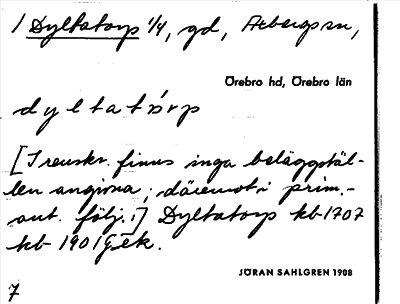 1 Dyltatorp 1/4, gd, Axbergs sn,
Örebro hd, Örebro län
dyltatòrp
[I renskr. finns inga beläggstäl-
len angivna; däremot i prim.-
ant. följ.:] Dyltatorp kb 1707
kb 1901 G ek.
JÖRAN SAHLGREN 1908
7